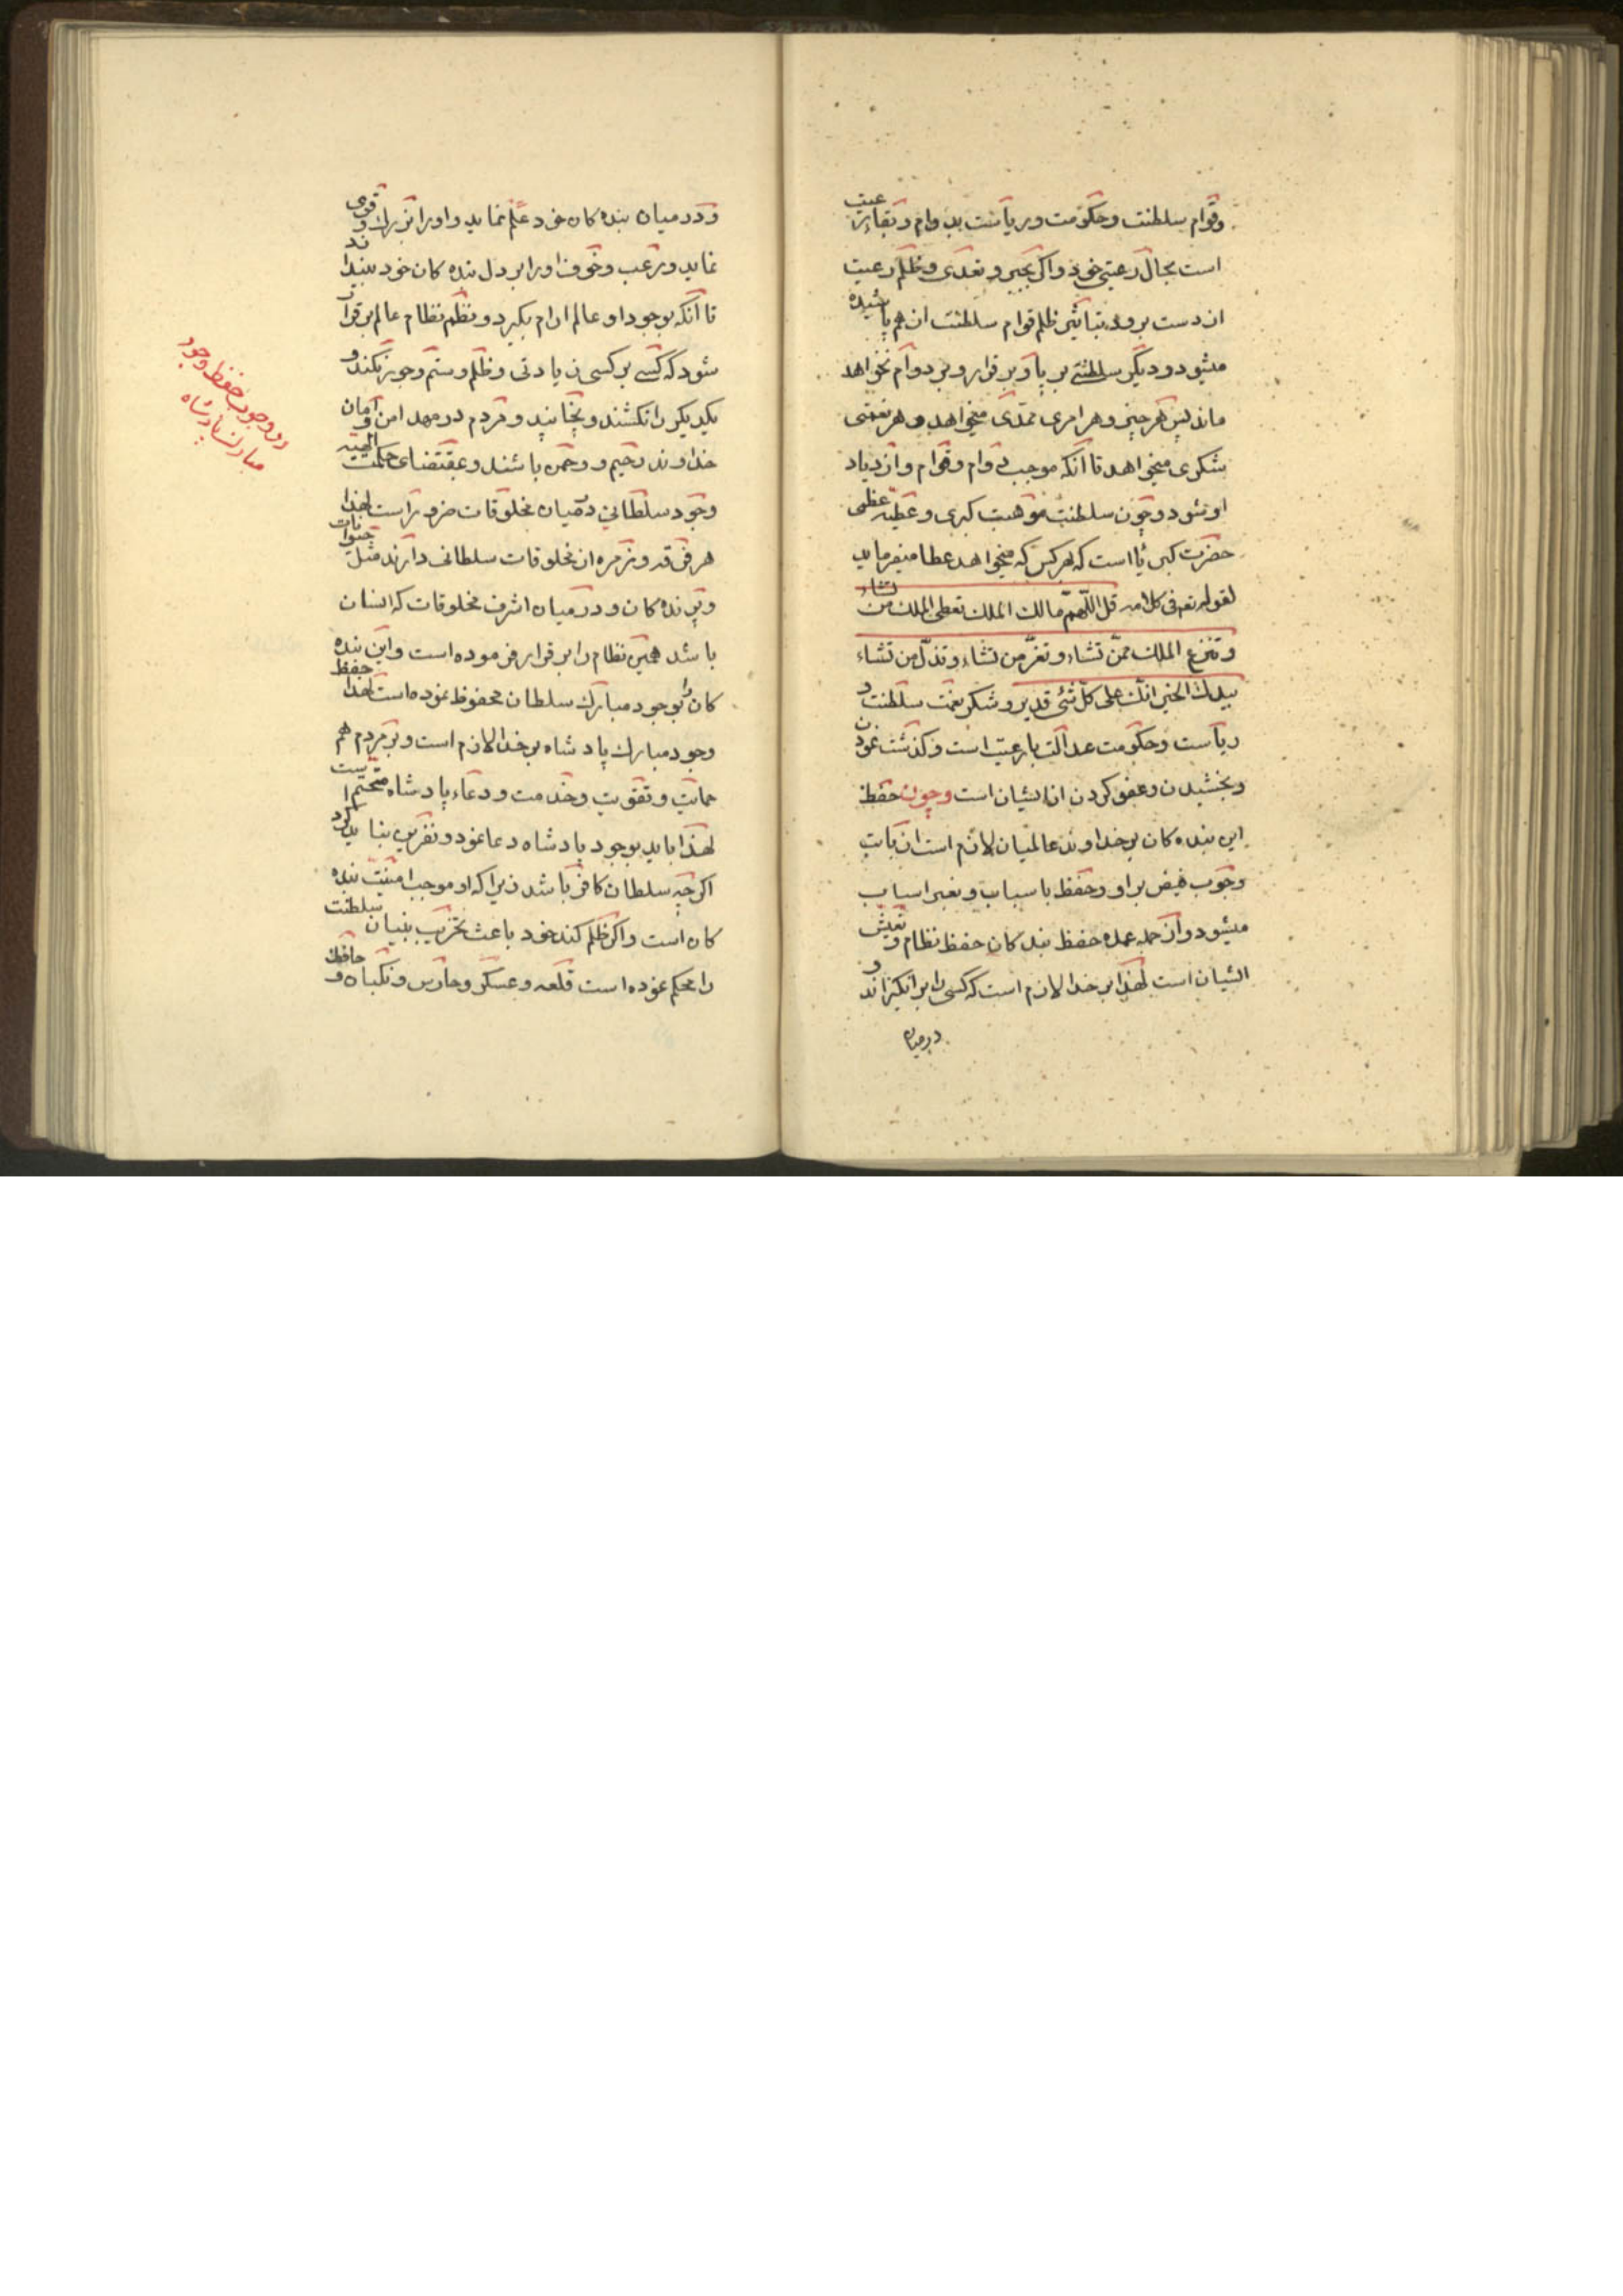 وقوام سلطنت وحکومت وریاست بدوام وبقاء رعیت
است بحال رعیتی خود واکر بجبر و تعدی وظلم رعیت
از دست برود بتاثیر ظلم قوام سلطنت از هم پاشیده
میشود و دیکر سلطنتی بر پا وبر قرار وبر دوام نخواهد
ماند پس هر چیز وهر امری ممدی میخواهد وهر نعمتی
شکری میخواهد تا آنکه موجب دوام وقوام وازدیاد
او شود وچون سلطنت موهبت کبری وعطیه عظمی
حضرت کبریا است که بهر کس که میخواهد عطا میفرماید
لقوله تعم فی کلامه قل اللّهمّ مالک الملک تعطی الملک من تشاء
وتنزع الملک ممّن تشاء وتعزّ من تشاء وتذلّ من تشاء
بیدک الخیر انّک علی کلّ شئ قدیر وشکر نعمت سلطنت و
ریاست وحکومت عدالت با رعیت است وکذشت نمودن
وبخشیدن وعفو کردن از ایشان است وجوب حفظ
این بنده کان بر خداوند عالمیان لازم است از بابت
وجوب فیض بر او وحفظ باسباب وبغیر اسباب
میشود واز جمله عمده حفظ بندکان حفظ نظام وتعیش
ایشان است لهذا بر خدا لازم است که کسی را برانکیزاند و
درمیان
ودر میان بنده کان خود علم نماید واورا بزرک وقوی
نماید ورعب وخوف اورا بر دل بنده کان خود بیندازد
تا آنکه بوجود او عالم ارام بکیرد ونظم نظام عالم برقرار
شود که کسی بر کسی زیادتی وظلم وستم وجور نکند و
یکدیکر را نکشند ونچاپند ومردم در مهد امن وامان
خداوند رحیم ورحمن باشند وبمقتضای حکمت الهیه
وجود سلطانی در میان مخلوقات ضرور است لهذا
هر فرقه وزمره از مخلوقات سلطانی دارند مثل حیوانات
وپرنده کان ودر میان اشرف مخلوقات که انسان
باشد همین نظام را بر قرار فرموده است واین بنده
کان را بوجود مبارک سلطان محفوظ نموده است لهذا حفظ
وجود مبارک پادشاه بر خدا لازم است وبر مردم هم
حمایت وتقویت وخدمت ودعاء پادشاه متحتم است
لهذا باید بوجود پادشاه دعا نمود ونفرین نباید کرد
اکرچه سلطان کافر باشد زیرا که او موجب امنیت بنده
کان است واکر ظلم کند خود باعث تخریب بنیان سلطنت
را محکم نموده است قلعه وعسکر وحارس ونکبان وحافظ
در وجوب حفظ وجود
مبارک پادشاه